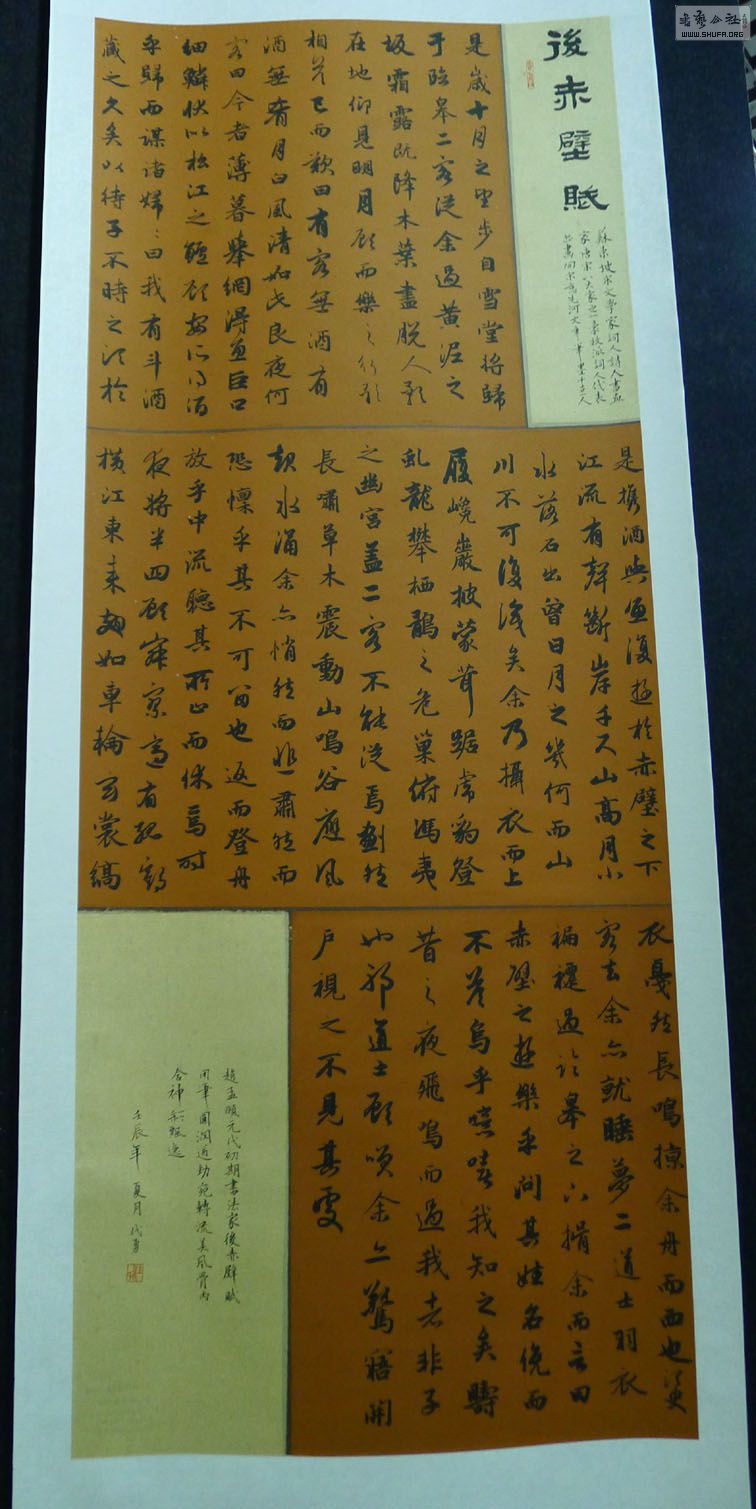 書藝公社
WWW.SHUFA.ORG
後赤壁賦
蘇東坡宋文學家詞人詩人書画
家唐宋八大家之一豪放派詞人代表
是歲十月之望步自雪堂將歸
于臨皋二客從余過黄泥之
坂霜露既降木葉盡脱人影
在地仰見明月顧而樂之行歌
相答已而歎曰有客無酒有
酒無肴月白風清如此良夜何
客曰今者薄暮舉網得魚巨口
細鱗状似松江之鱸顧安所得酒
乎歸而謀諸婦〻曰我有斗酒
蔵之久矣以待子不時之須於
是携酒與魚復遊於赤壁之下
江流有聲斷岸千尺山高月小
水落石出曾日月之幾何而山
川不可復識矣余乃攝衣而上
履巉巖披蒙茸踞虎豹登
虬龍攀栖鶻之危巢俯馮夷
之幽宮盖二客不能從焉劃然
長嘯草木震動山鳴谷應風
起水涌余亦悄然而悲肅然而
恐懍乎其不可留也返而登舟
放乎中流聽其所止而休焉時
夜將半四顧寂寥適有孤鶴
横江東来翅如車輪玄裳縞
衣戛然長鳴掠余舟而西也須臾
客去余亦就睡夢二道士羽衣
褊褼過臨皋之下揖余而言曰
赤壁之遊樂乎問其姓名俛而
不答烏乎噫嘻我知之矣疇
昔之夜飛鳴而過我者非子
也邪道士顧笑余亦驚寤開
户視之不見其處
趙孟頫元代初期書法家後赤壁賦
用筆圓潤遒勁宛轉流美風骨内
含神彩飄逸
壬辰年夏月